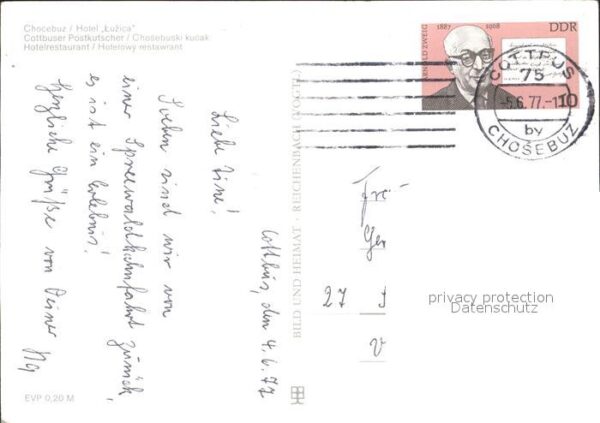 Chocebuz / Hotel „Łužica"
Cottbuser Postkutscher / Chošebuski kućak
Hotelrestaurant / Hotelowy restawrant
ARNOLD ZWEIG
1887 1968
DDR
10
COTTBUS
75
-5.6.77.-1
by
CHOŚEBUZ
Cottbus, den 4.6.77
Liebe Tine!
Soeben sind wir von
einer Spreewaldkahnfahrt zurück,
es ist ein Erlebnis!
Herzliche Grüße von Deiner
BILD UND HEIMAT · REICHENBACH (VOGTL)
Fr
Ge
27
V
privacy protection
Datenschutz
EVP 0,20 M